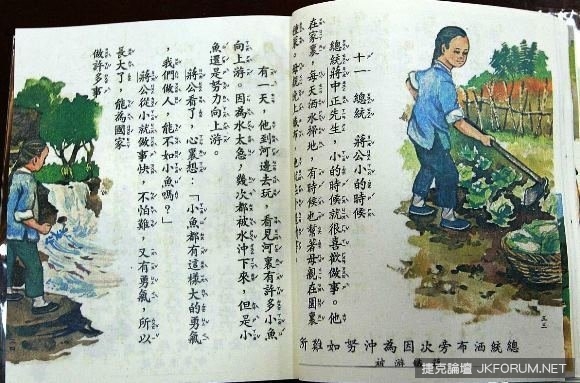 十一 總統 蔣公小的時候
總統蔣中正先生，小的時候就很喜歡做事。他
在家裏，每天洒水掃地，有時候也幫著母親在園裏
總統洒布旁次因為沖努如難所
游被
五三
有一天，他到河邊去玩 看見河裏有許多小魚
向上游。因為水太急，幾次都被水沖下來，但是小
魚還是努力向上游。
蔣公看了，心裏想：「小魚都有這樣大的勇氣
，我們做人 能不如小魚嗎？」
蔣公從小就做事快，不怕難，又有勇氣，所以
長大了，能為國家
做許多事
捷克論壇 JKFORUM.NET